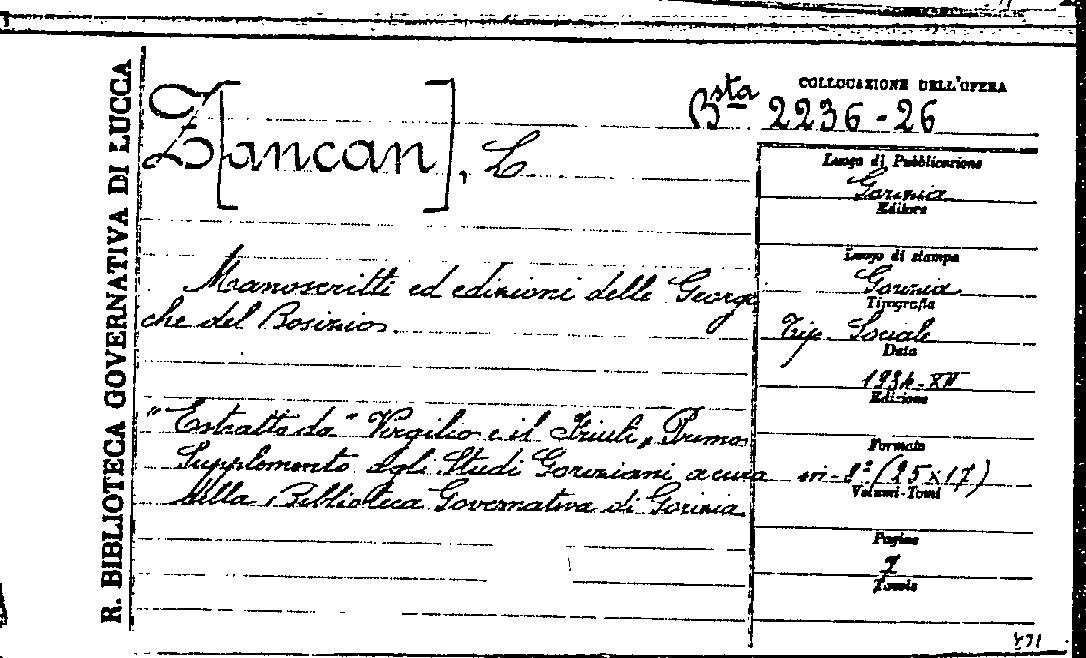 R. BIBLIOTECA GOVERNATIVA DI LUCCA
Z[ancan], L
Manoscritti ed edizioni delle Georgi
che del Bosizio.
"Estratto da "Virgilio e il Friuli, Primo
Supplemento agli Studi Goriziani a cura
della Biblioteca Governativa di Gorizia.
COLLOCAZIONE DELL'OPERA
Bsta 2236-26
Luogo di Pubblicazione
Gorizia
Editore
Luogo di stampa
Gorizia
Tipografia
Tip. Sociale
Data
Edizione
Formato
in-8º (25x17)
Volumi-Tomi
Pagine
7
Tavole